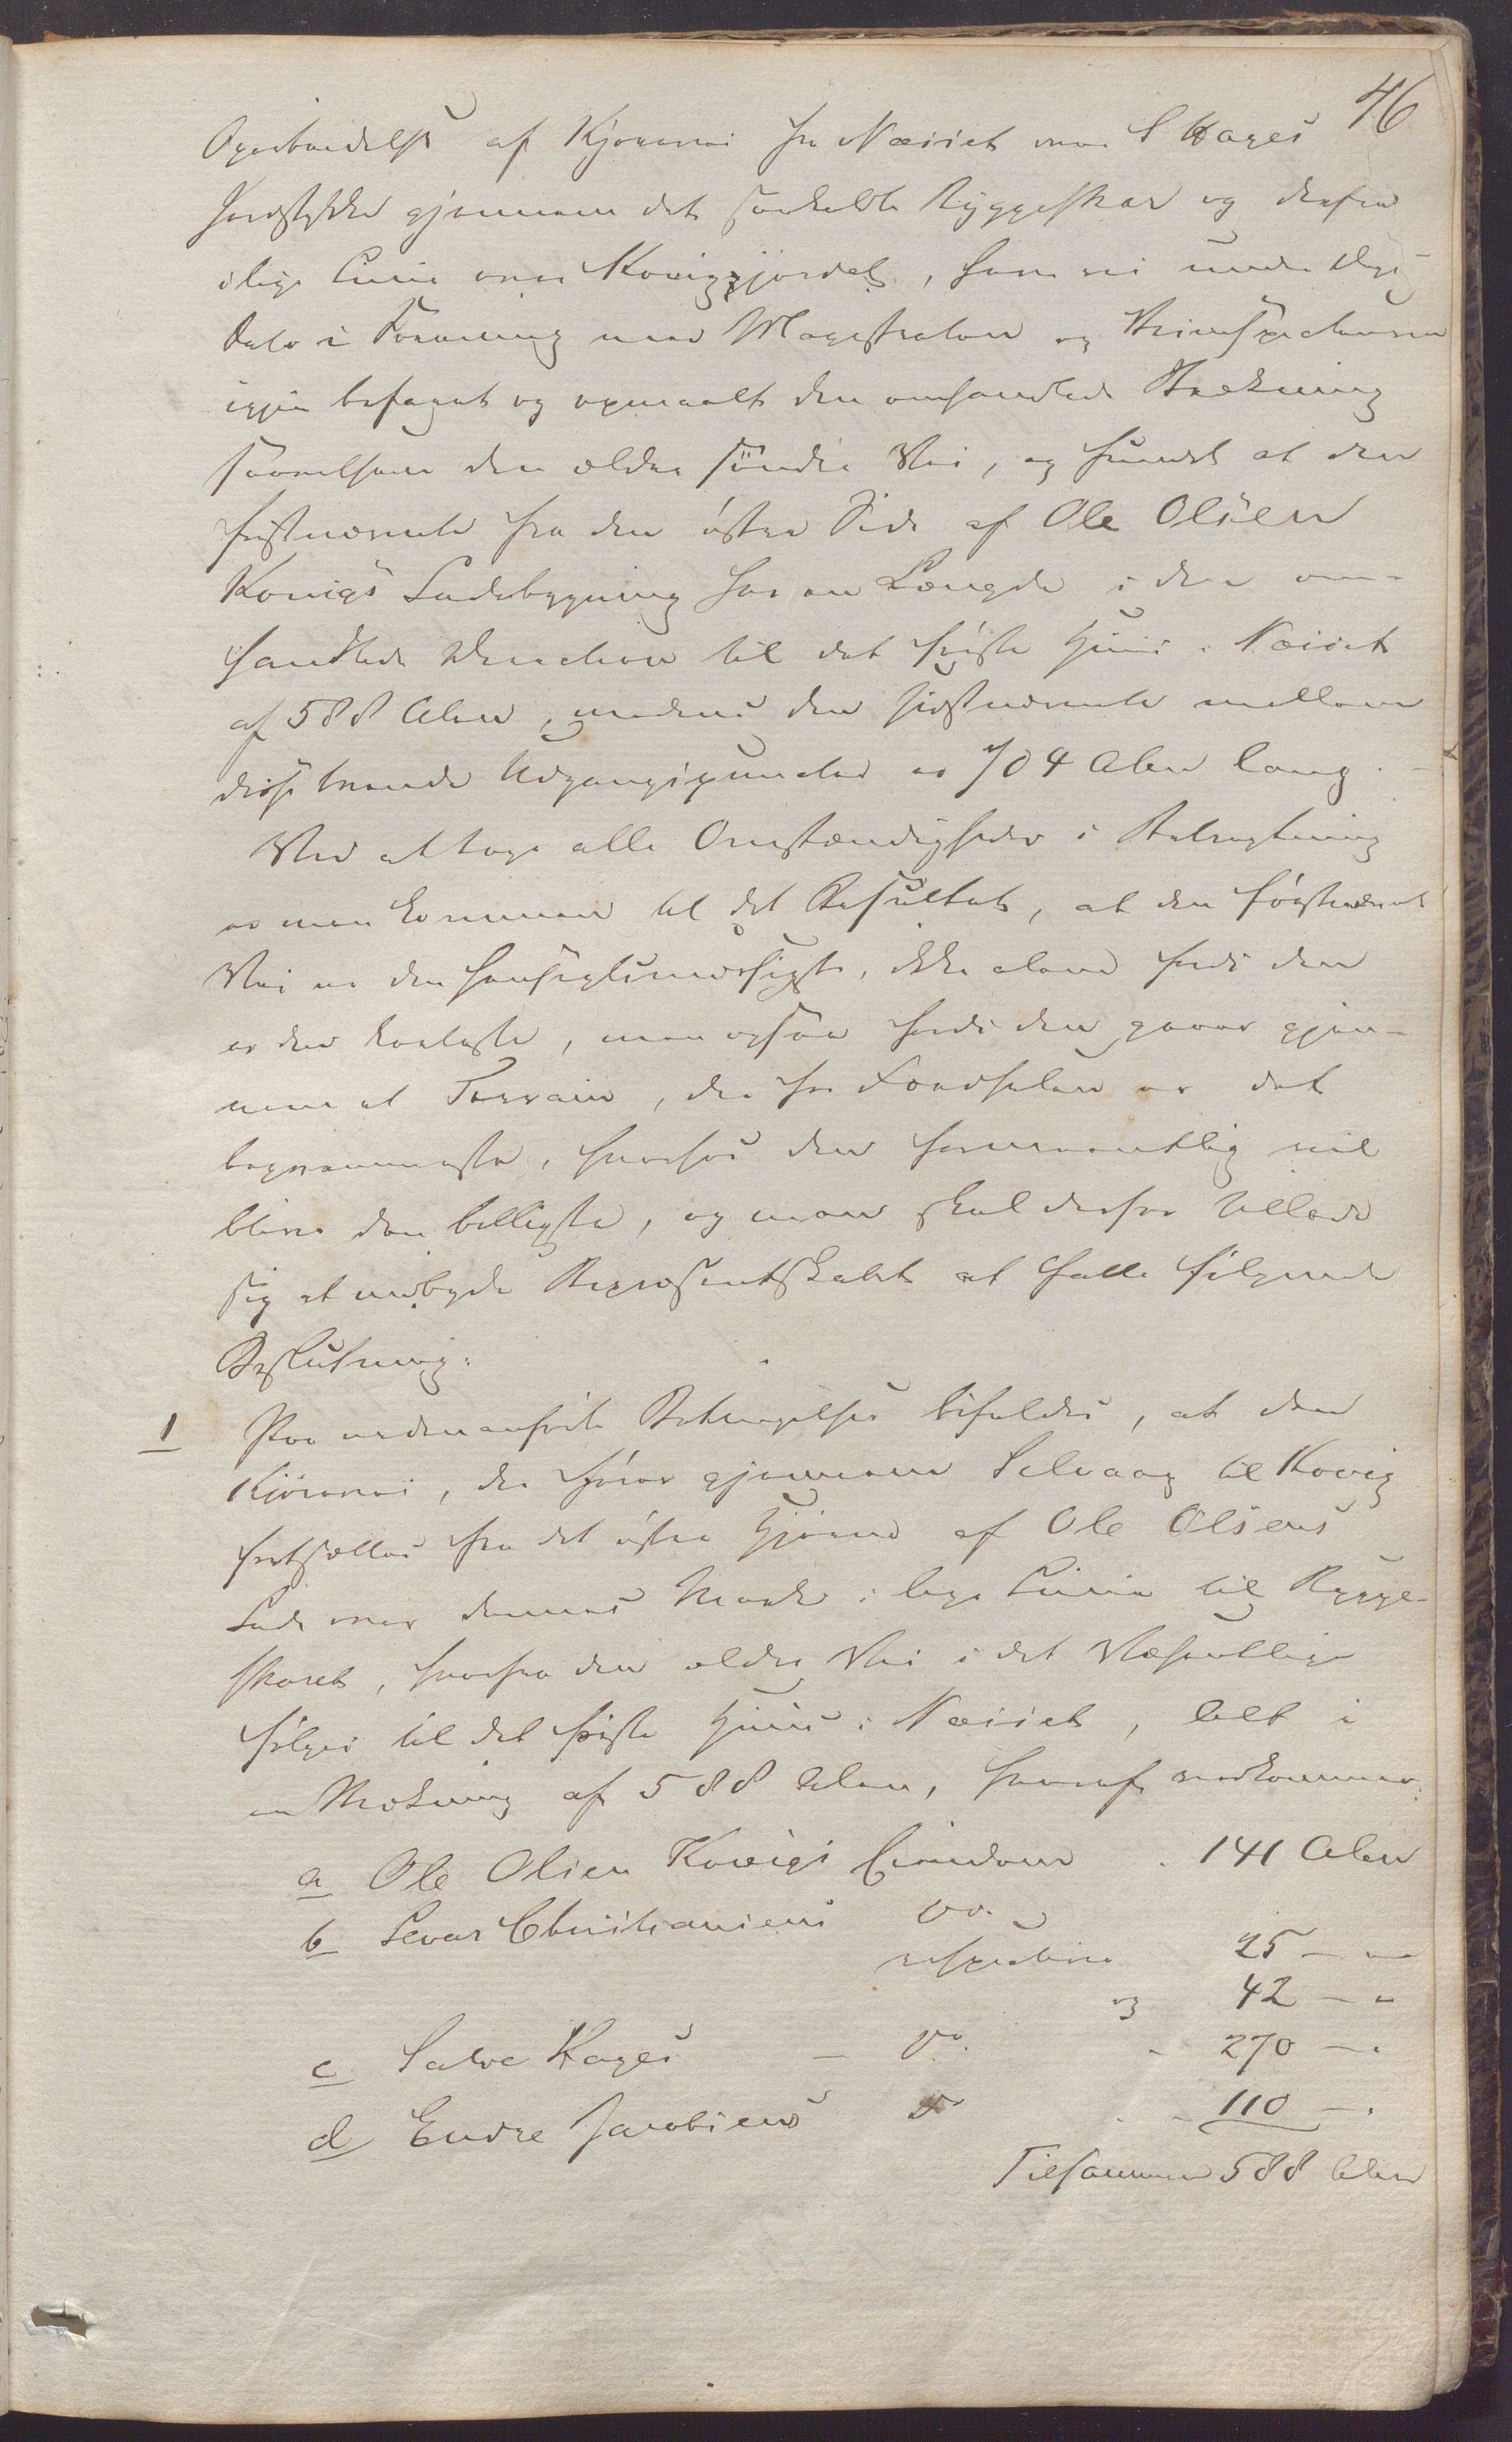 46
Oparbeidelse af Kjørevei fra Næsset over S Hages
Jordstykke gjennem det saakaldte Ryggeskar og derfra
i lige Linie over Kovigjordet, have vi under Dags
Dato i Forening med Magistraten og Veiinspecteuren
igjen befaret og opmaalt den omhandlede Strækning
saavelsom den ældre søndre Vei, og fundet at den
førstnævnte fra den østre Side af Ole Olsen
Kovigs Ladebygning har en Længde i den om-
handlede Direction til det første Huus i Næsset
af 588 Alen, medens den sidstnævnte mellem
disse tvende Udgangspuncter er 704 Alen lang.
Ved at tage alle Omstændigheder i Betragtning
er man kommen til det Resultat, at den førstnævnte
Vei er den hensigtsmæssigste, ikke alene fordi den
er den korteste, men ogsaa fordi den gaaer gjen-
nem et Terrain, der for Færdselen er det
beqvemmeste, hvorhos den formeentlig vil
blive den billigste, og man skal derfor tillade
sig at indbyde Repræsentskabet at fatte følgende
Beslutning:
1 Paa nedenanførte Betingelser bifaldes, at den
Kjørevei, der fører gjennem Selvaag til Kovig
fortsættes fra det østre Hjørne af Ole Olsens
Lade over dennes Mark i lige Linie til Rygge-
skaret, hvorfra den ældre Vei i det Væsentlige
følges til det første Huus i Næsset, alt i
en Strækning af 588 Alen, hvoraf vedkommer:
a Ole Olsen Kovigs Eiendom . 141 Alen
b Sevar Christiansens Do.
respective 25 — "
og 42 — "
c Salve Hages — Do. - 270 — "
d Endre Jacobsens Do - 110 — "
Tilsammen 588 Alen